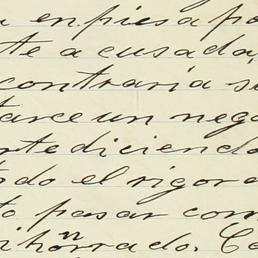 en pies a po
te a cusada,
contraria se
tarce un nego
rte diciendo
todo el rigor d
to pasar com
i honrrado. Co